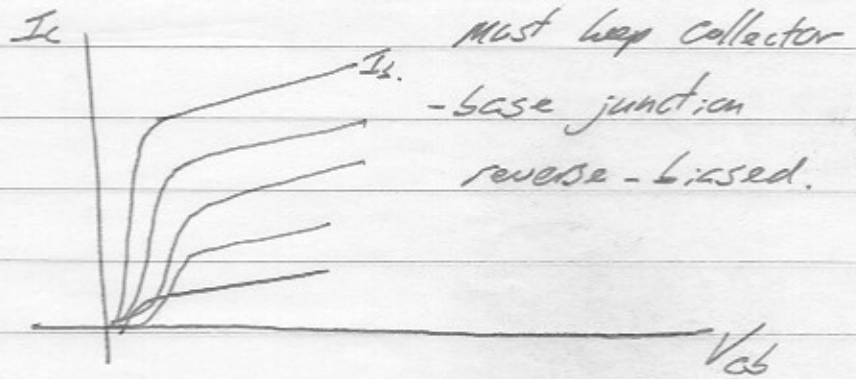 Ic
must keep collector
Ib.
-base junction
reverse-biased.
Vcb